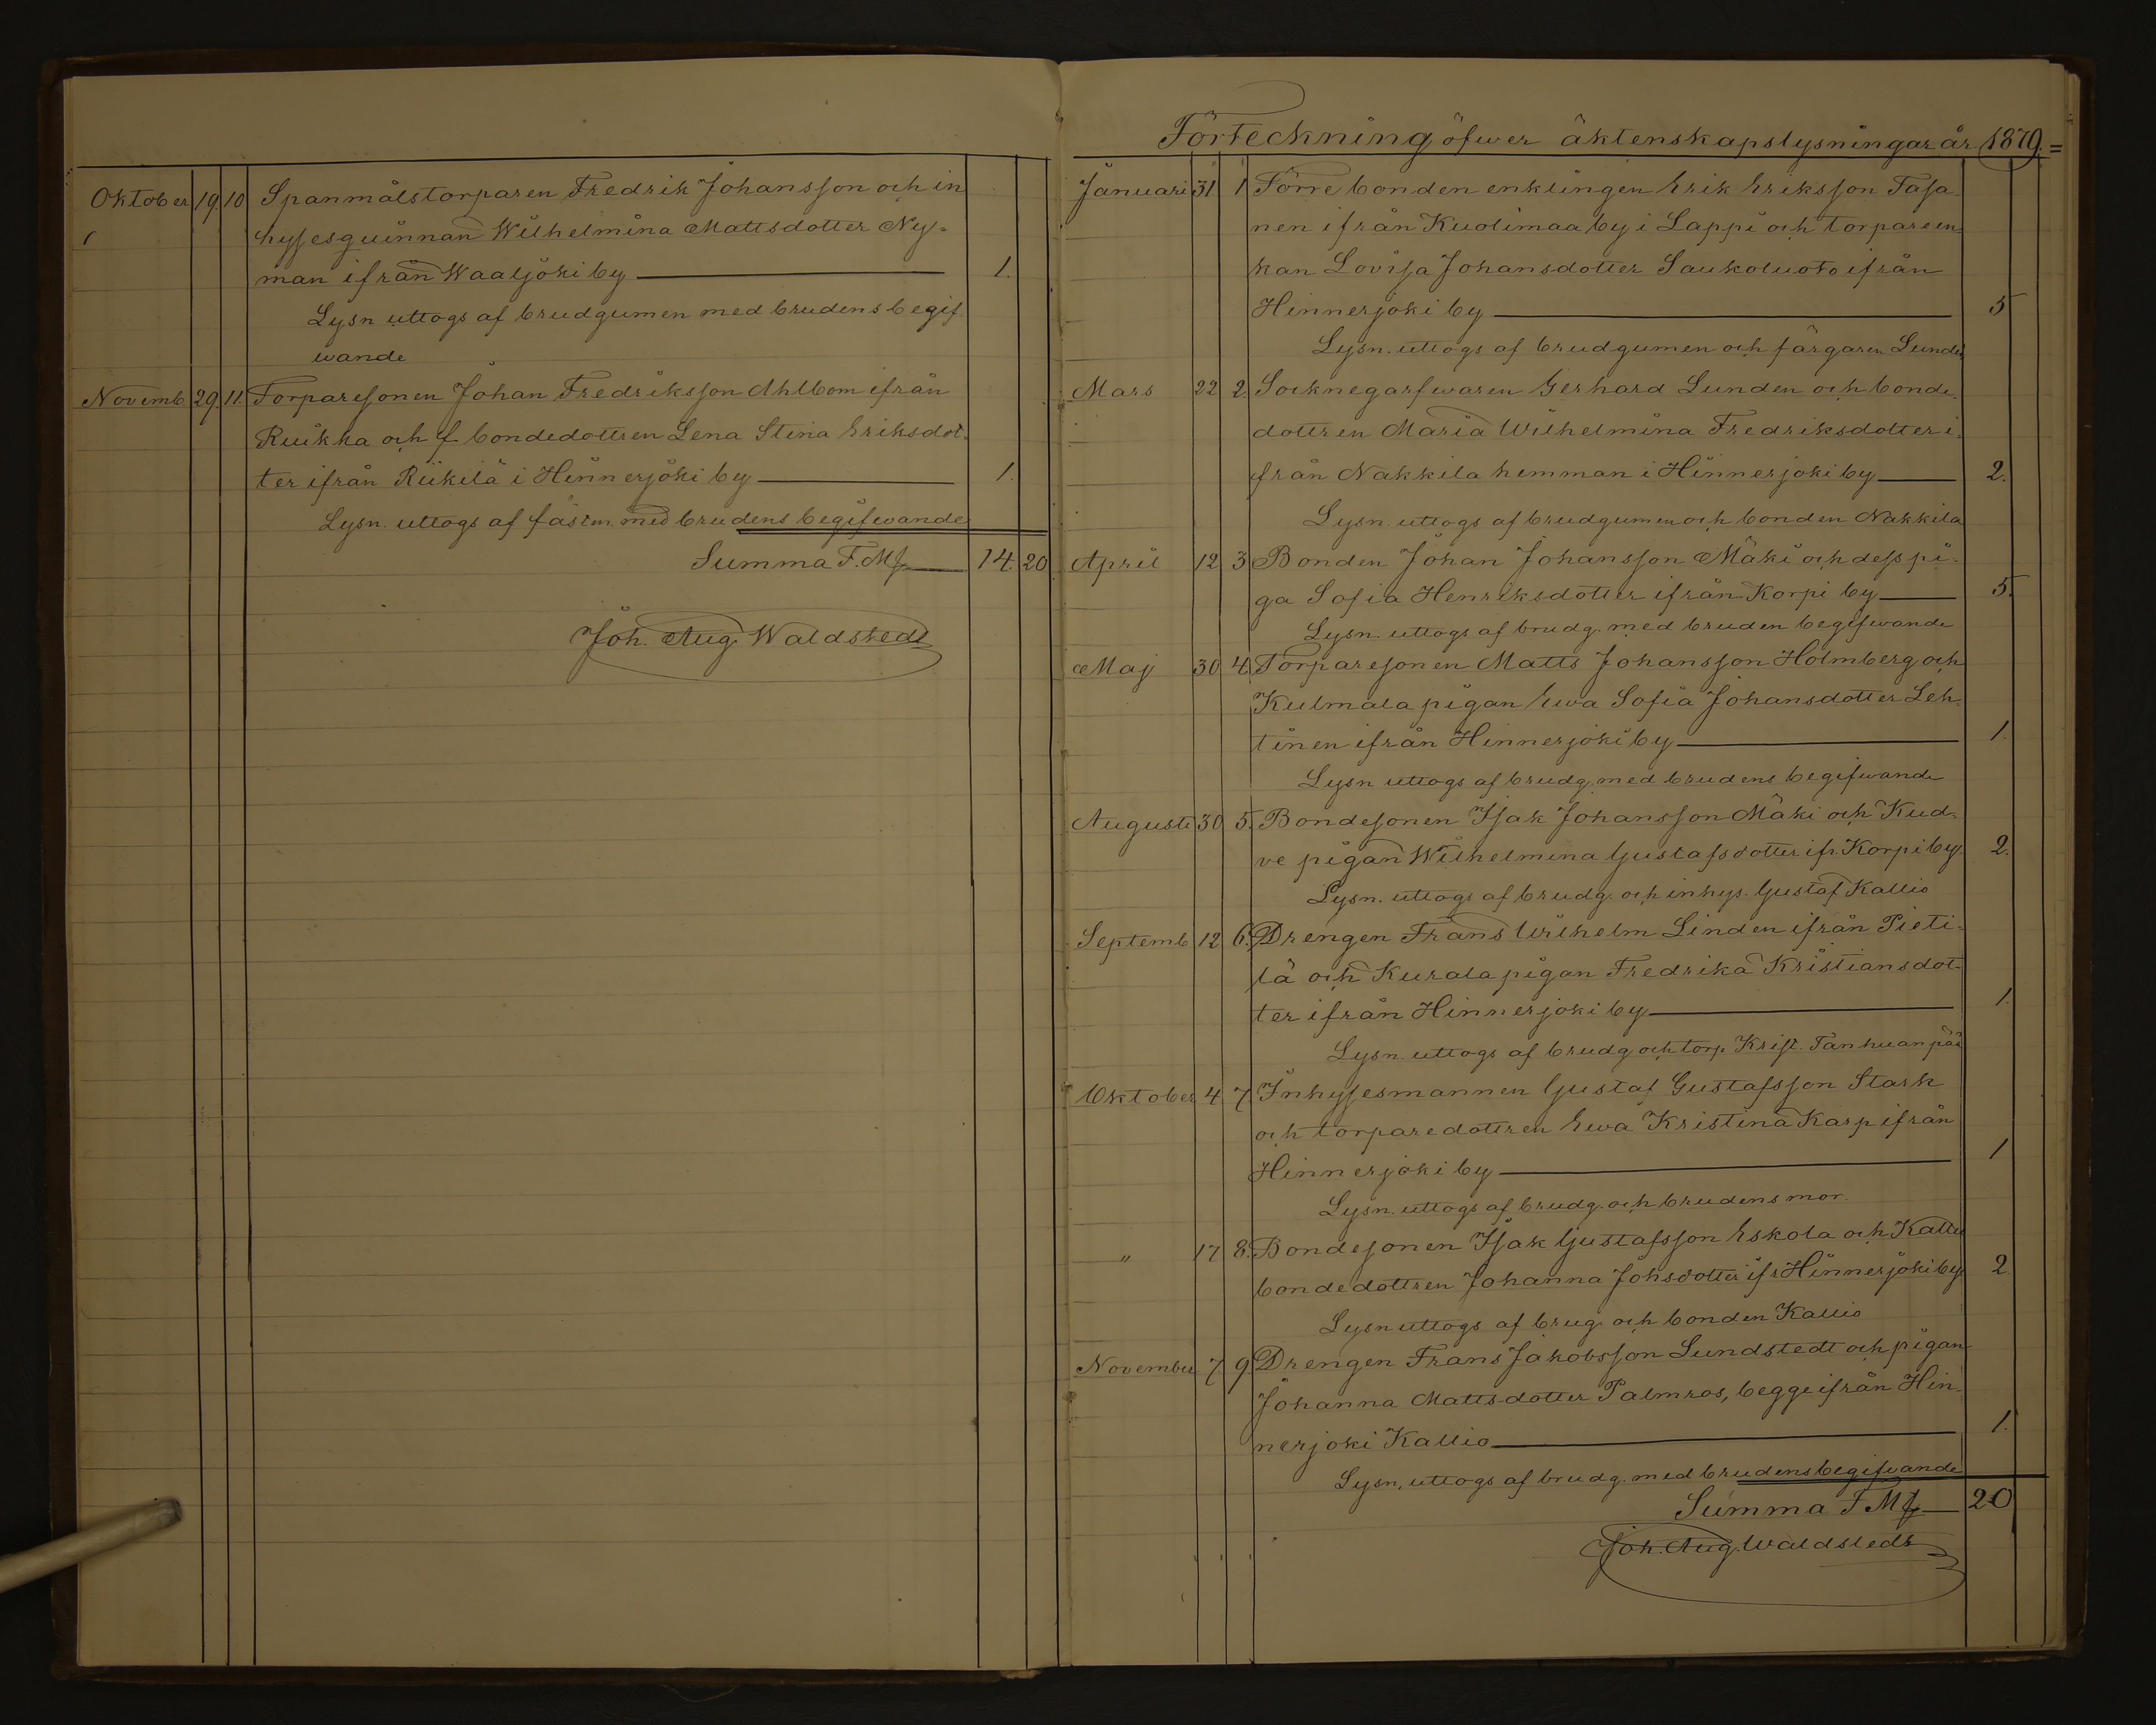 Oktober 19. 10 Spanmålstorparen Fredrik Johansson och in
hysesquinnan Wilhelmina Mattsdotter Ny-
man ifrån Waaljoki by 1.
Lysn uttogs af brudgumen med brudens begif
wande
Novemb. 29. 11. Torparesonen Johan Fredriksson Ahlbom ifrån
Ruikka och f. bondedottren Lena Stina Eriksdot-
ter ifrån Riikilä i Hinnerjoki by 1.
Lysn. uttogs af fästm. med brudens begifwande
Summa F.Mk 14. 20
Joh. Aug. Waldstedt
Förteckning öfwer äktenskapslysningar år 1879.=
Januari 31. 1 Förre bonden enklingen Erik Eriksson Tasa-
nen ifrån Kuolimaa by i Lappi och torpareen-
kan Lovisa Johansdotter Saukoluoto ifrån
Hinnerjoki by 5
Lysn. uttogs af brudgumen och färgaren Lunden
Mars 22 2. Socknegarfwaren Gerhard Lunden och bonde-
dottren Maria Wilhelmina Fredriksdotter i-
från Nakkila hemman i Hinnerjoki by 2.
Lysn. uttogs af brudgumen och bonden Nakkila
April 12 3 Bonden Johan Johansson Mäki och dess pi-
ga Sofia Henriksdotter ifrån Korpi by 5.
Lysn. uttogs af brudg. med bruden begifwande
Maj 30 4. Torparesonen Matts Johansson Holmberg och
Kulmala pigan Ewa Sofia Johansdotter Leh-
tinen ifrån Hinnerjoki by 1.
Lysn uttogs af brudg. med brudens begifwande
Augusti 30 5. Bondesonen Isak Johansson Mäki och Kud-
ve pigan Wilhelmina Gustafsdotter ifr. Korpi by 2.
Lysn. uttogs af brudg. och inhys. Gustaf Kallio
Septemb. 12 6. Drengen Frans Wilhelm Linden ifrån Pieti-
lä och Kurala pigan Fredrika Kristiansdot-
ter ifrån Hinnerjoki by 1.
Lysn. uttogs af brudg och torp. Krist. Tanhuanpää
Oktober 4 7. Inhysesmannen Gustaf Gustafsson Stark
och torparedottren Ewa Kristina Karp ifrån
Hinnerjoki by 1
Lysn. uttogs af brudg. och brudens mor.
" 17 8. Bondesonen Isak Gustafsson Eskola och Kallio
bondedottren Johanna Johsdotter ifr Hinnerjoki by 2.
Lysn uttogs af brug. och bonden Kallio
November 7 9. Drengen Frans Jakobsson Sundstedt och pigan
Johanna Mattsdotter Palmros, begge ifrån Hin-
nerjoki Kallio 1.
Lysn. uttogs af brudg. med brudens begifvande
Summa F Mk 20
Joh. Aug. Waldstedt